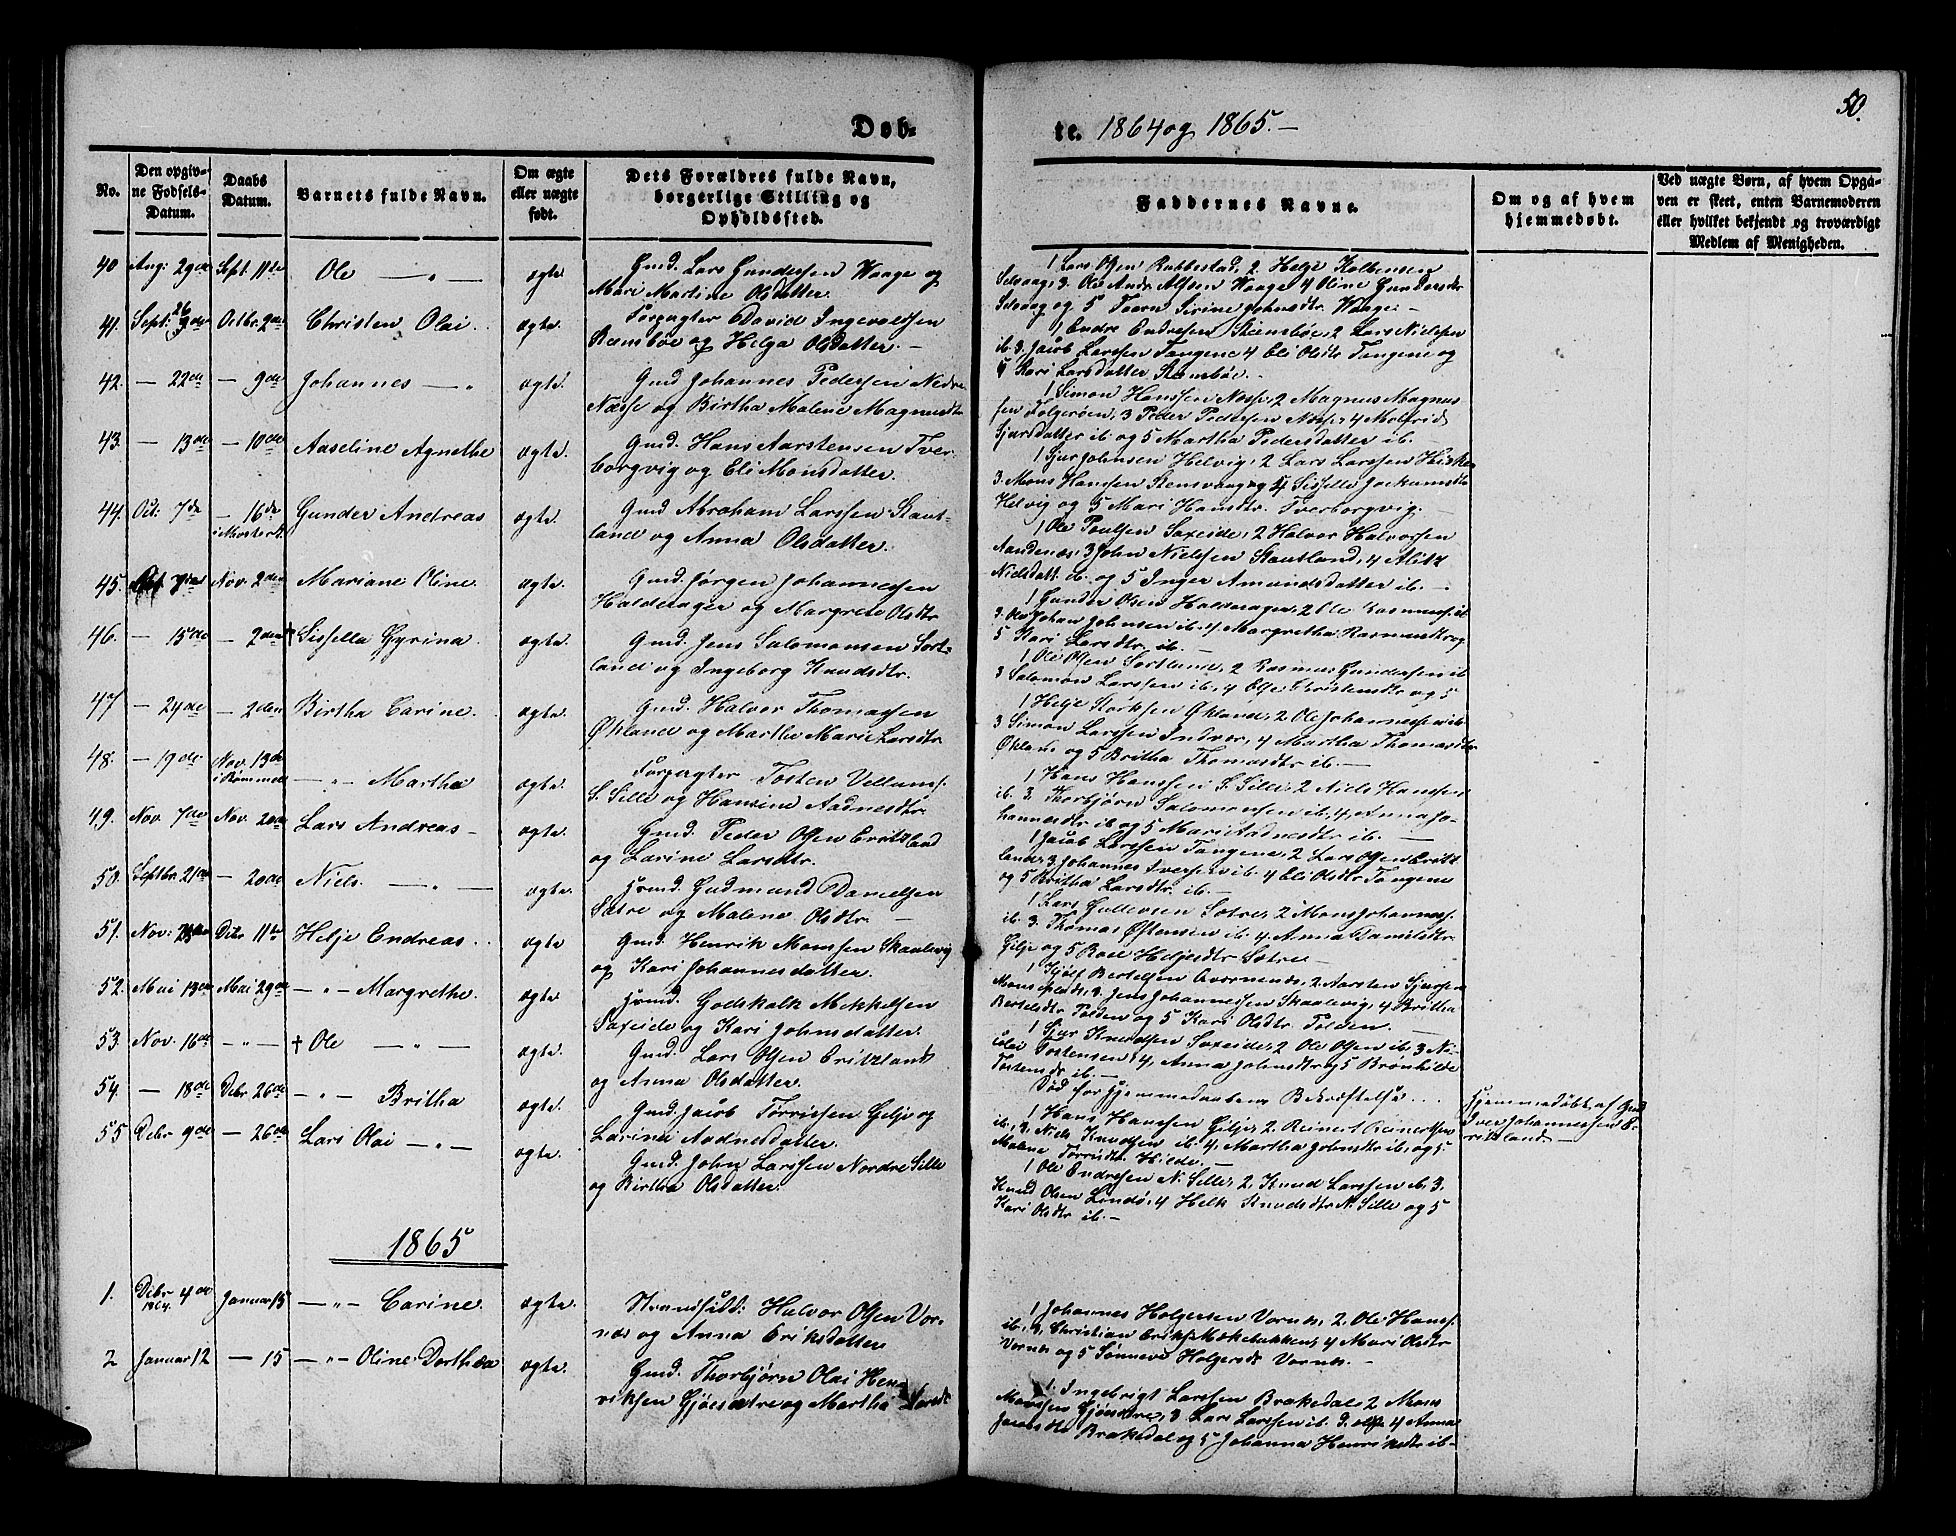 Døb-
te. 1864 og 1865.-
50.
No.
Den opgiv-
ne Fødsels-
Datum.
Daabs
Datum.
Barnets fulde Navn.
Om ægte
eller uægte
født.
Dets Forældres fulde Navn,
borgerlige Stilling og
Opholdssted.
Faddernes Navne.
Om og af hvem
hjemmedøbt.
Ved uægte Børn, af hvem Opga-
ven er skeet, enten Barnemoderen
eller hvilket bekjendt og troværdigt
Medlem af Menigheden.
40 Aug: 29de Sept. 11te Ole — " — ægte Gmd. Lars Gundersen Waage og
Mari Martine Olsdatter.
1 Lars Olsen Rabbestad, 2 Helje Kolbensen
Selvaag, 3. Ole Andr. Alfsen Waage 4 Oline Gundersdtr
Selvaag og 5 Sirine Johnsdtr. Waage. —
41. Sept: 26 Octbr. 2den Christen Olai. ægte. Forpagter David Ingevaldsen
Stensbøe og Helga Olsdatter. —
1 Endre Endresen Stensbøe, 2 Lars Nielsen
ib. 3. Jacob Larssen Tangene 4 Eli Olsdtr Tangene og
5 Kari Larsdatter Stensbøe. —
42. — 22de — 9de Johannes — " ægte. Gmd Johannes Pedersen Nedre
Næsse og Birtha Malene Magnusdtr
1 Simon Hanssen Næsse, 2 Magnus Magnus
sen Folgerøen, 3 Peder Pedersen Næsse, 4 Molfrid
Sjursdatter ib og 5 Martha Pedersdatter ib. —
43. — 13de — 10de Aaseline Agnethe ægte. Gmd. Hans Aarstensen Tver-
borgvig og Eli Monsdatter.
1 Sjur Johnsen Helvig, 2 Lars Larssen
3. Mons Hanssen Stensvaag og 4 Sissille
Helvig og 5 Mari Hansdtr. Tverborgvig. —
44. Oct: 7de — 16de Gunder Andreas ægte. Gmd Abraham Larssen Staut-
i Mosterk. land og Anna Olsdatter.
1 Ole Poulsen Saxeide, 2 Halvor Halvorsen
Aandenæs, 3 John Nielsen Stautland, 4 Alitz
Nielsdatt. ib. og 5 Inger Amundsdatter ib. —
45. Nov. 2den Mariane Oline. ægte. Gmd. Jørgen Johannessen
Halderager og Margrete Olsdtr
1 Gunder Olsen Halderager, 2 Ole Rasmuss. ib
3. Johan Johnsen ib. 4 Margretha Rasmusdtr og
5 Kari Larsdtr. ib. —
46. — 15de — 2den † Sissella Gyrina. ægte. Gmd. Jens Salomonsen Sort-
land og Ingeborg Knudsdtr.
1 Ole Olsen Sortland, 2 Rasmus Gundersen ib
3 Salomon Larssen ib, 4 Else Christensdtr og 5
47 — 24de — 2den Birtha Carine. ægte. Gmd. Halvor Thomassen
Økland og Martha Marie Larsdtr.
1 Helje Størksen Økland, 2 Ole Johannessen ib
3. Simon Larssen Indvær, 4 Martha Thomasdtr
Økland og 5 Britha Thomasdtr ib. —
48. — 19de Nov. 13de
i Bømmel — " — Martha ægte. Forpagter Tosten Vellums.
S. Sille og Hansine Aadnesdtr.
1 Hans Hanssen S. Sille, 2 Niels Hanssen
ib. 3. Thorbjørn Salomonsen ib, 4 Anna Jo-
hannesdtr ib og 5 Mari Aadnesdtr ib. —
49. Nov. 7de Nov. 20de Lars Andreas — ægte. Gmd. Peder Olsen Eritzland
og Larine Larsdtr.
1 Jacob Larssen Tangene, 2 Lars Olsen Eritz
land, 3 Johannes Iversen ib. 4 Eli Olsdtr Tangene
og 5 Britha Larsdtr. ib. —
50. Septbr. 21de — 20de Niels. — " — ægte. Hmd. Gudmund Danielsen
Sætre og Malene Olsdtr. —
1 Lars Gullevsen Sætre, 2 Mons Johanness.
ib. 3. Thomas Østensen ib. 4 Anna Danielsdtr.
Gilje og 5 Roel Heljesdtr Sætre —
51. Nov: Debr 11te Helje Endreas ægte Gmd. Henrik Monssen Skaalevig
og Kari Johannesdatter.
1 Kjølf Bertelsen Avernende, 2 Aarsten Sjursen
3. Jens Johannessen Skaalevig, 4 Britha
Bertelsdtr Folden og 5 Kari Olsdtr Folden. —
52. Mai 13de Mai 29de — " — Margrethe. ægte. Hmd. Godskalk Mekkelsen
Saxeide og Kari Johnsdatter.
1 Sjur Knudsen Saxeide, 2 Ole Olsen ib. 3 Ni-
colai Tostensen, 4, Anna Johnsdtr og 5 Brønhilde
Tostensdt. ib. —
53. Nov. 16de — " — † Ole — " — ægte. Gmd. Lars Olsen Eritzland
og Anna Olsdatter.
Død før Hjemmedaabens Bekræftelse . . . Hjemmedøbt af Gmd
Iver Johannessen E-
ritzland —
54. — 18de Debr. 26de — " — Britha ægte. Gmd. Jacob Tørrissen Gilje og
Larina Aadnesdatter.
1 Hans Hanssen Gilje, 2 Reinert Reinertsen
ib, 3. Niels Knudsen ib. 4. Martha Johnsdtr ib, og 5
Malene Tørrisdtr. Hilde. —
55 Debr 9de — 26de Lars Olai — " — ægte. Gmd. John Larssen Nordre Sille
og Birtha Olsdatter.
1 Ole Endresen N. Sille, 2. Knud Larssen ib, 3.
Knud Olsen Lindø, 4 Knudsdtr N. Sille og 5
Kari Olsdtr ib. —
1865
1. Debr 4de
1864. Januar 15 — " — Carine. ægte. Strandsidd: Halvor Olsen Vor-
næs og Anna Eriksdatter
1 Johannes Holgersen Vornes, 2, Ole Hanss.
ib, 3, Christian Eriks. Mækebakken, 4 Mari Olsdtr
Vornes og 5 Sønneve Holgersdt Vornes. —
2 Januar 12 — 15 — " — Oline Dorthea ægte. Gmd. Thorbjørn Olai Hen-
riksen Gjøesætre og Martha Larsdt
1. Ingebrigt Larssen Brakedal 2 Mons
Monssen Gjøsætre, 3 Lars Larssen ib. 4 Anna
Brakedal og 5 Johanna Henriksdtr ib —